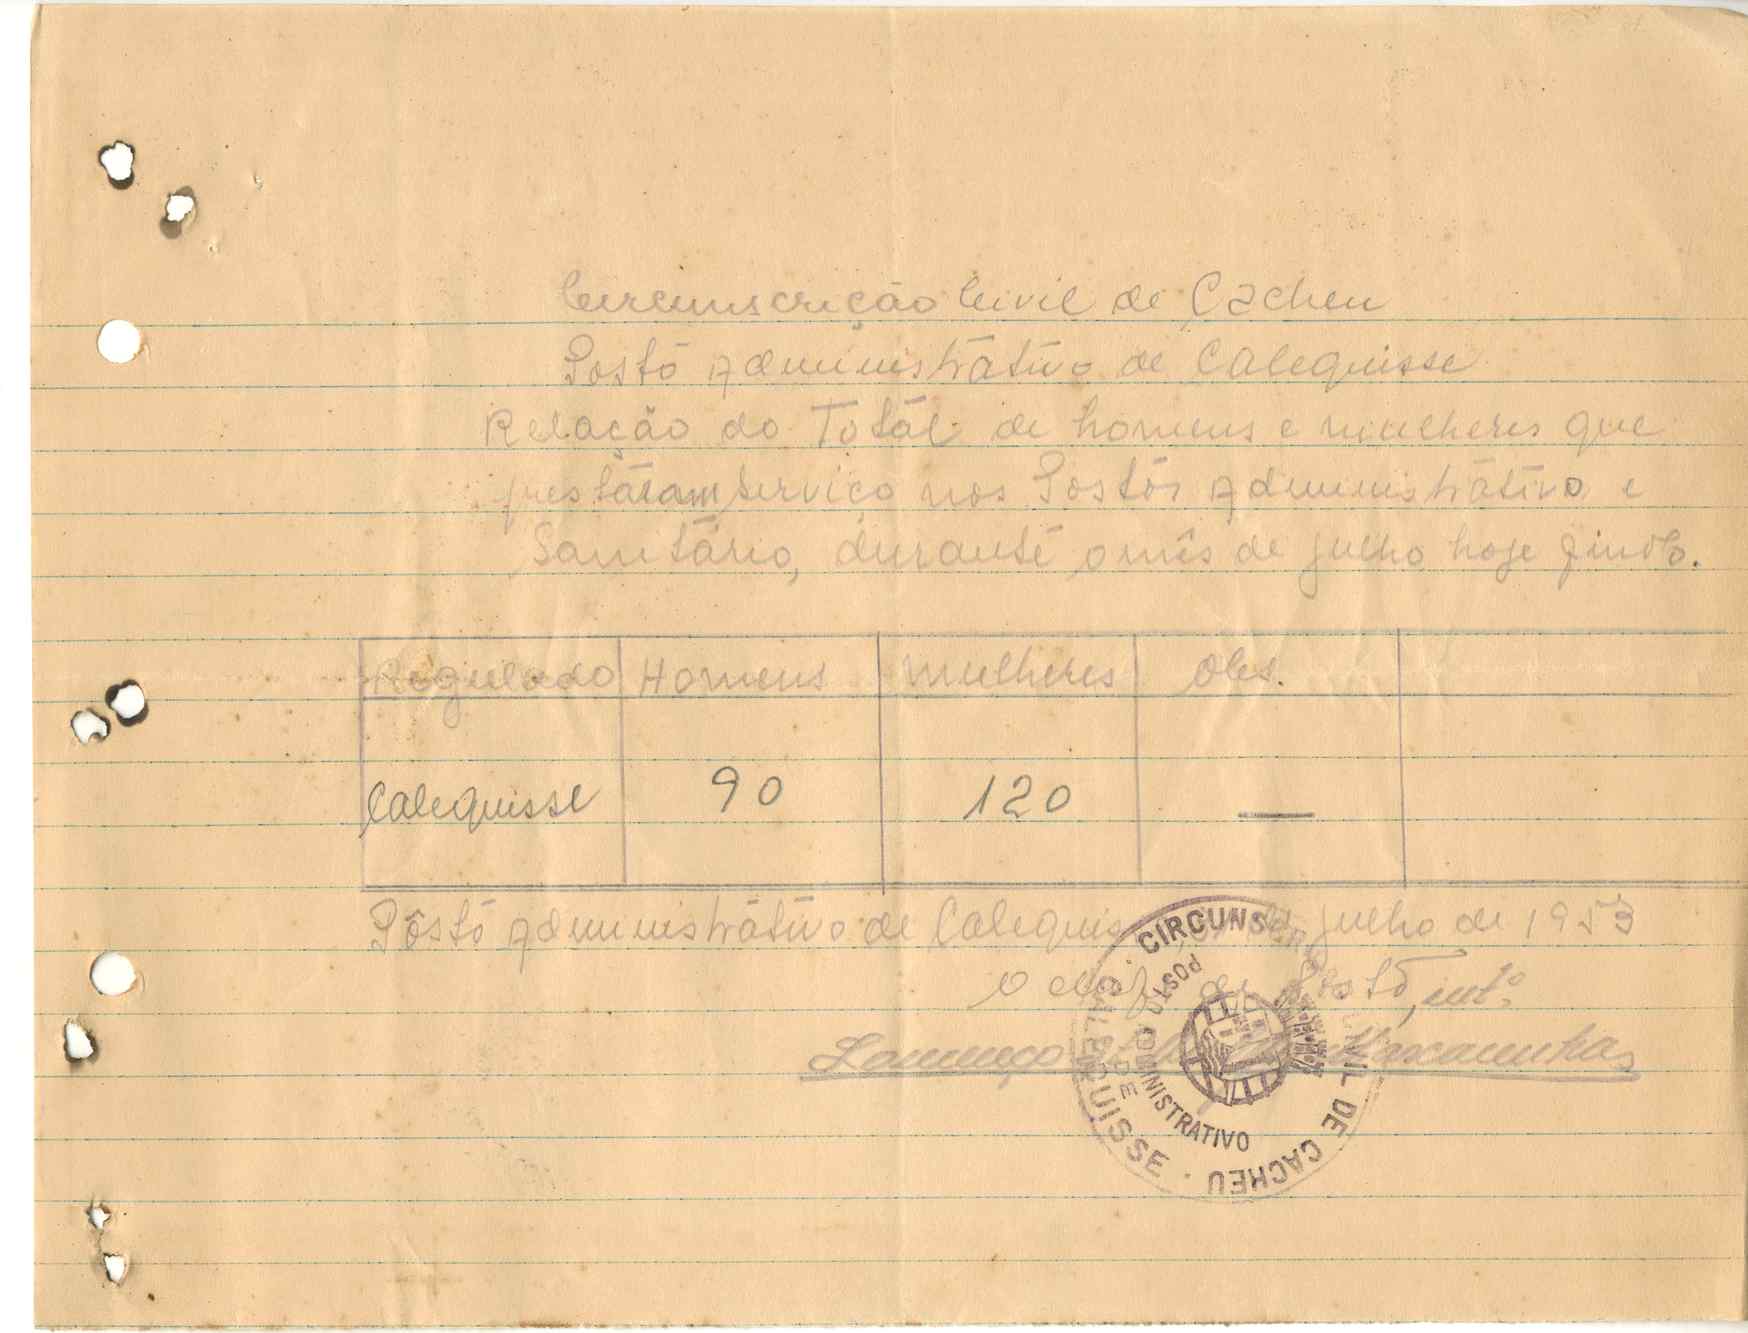 Circunscrição Civil de Cacheu
Posto Administrativo de Calequisse
Relação do Totál de homens e mulheres que
prestáram serviço nos Postos Administrátivo e
Sanitário, durante o mês de julho hoje findo.
Regulado Homens mulheres obs.
Calequisse 90 120 —
Pôsto Administrátivo de Calequisse julho de 1953
O chefe de Posto, intº.
Lourenço
CIRCUNSCRIÇÃO CIVIL DE CACHEU · CALEQUISSE ·
POSTO ADMINISTRATIVO DE